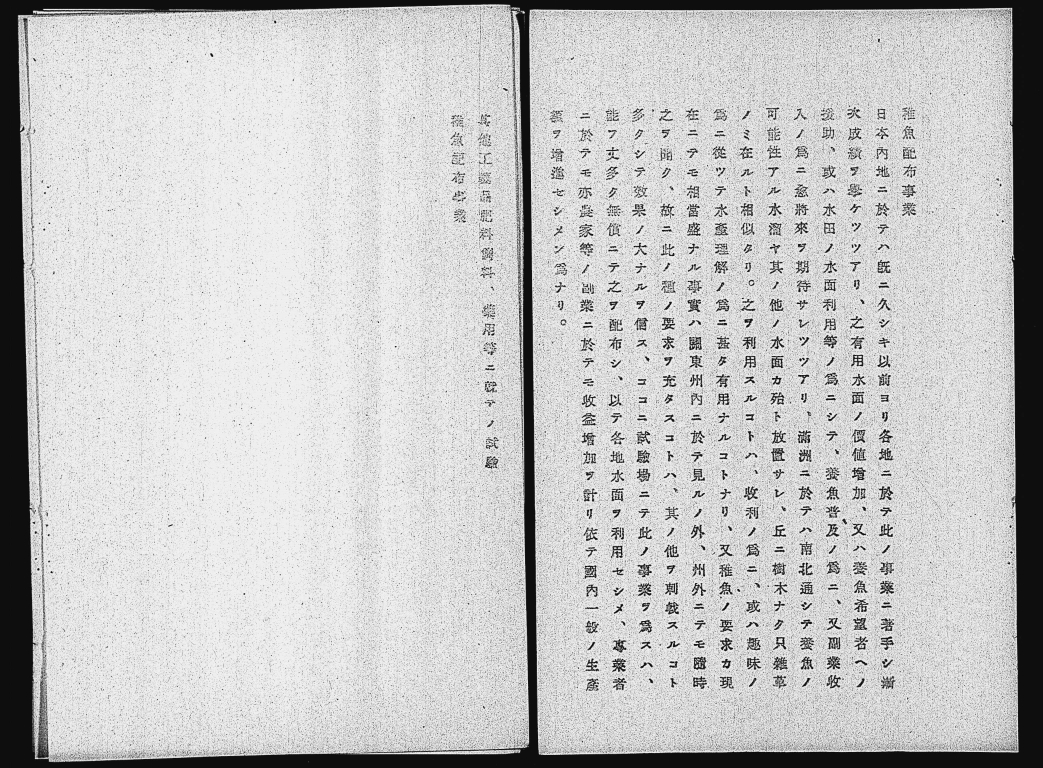 稚魚配布事業
日本內地ニ於テハ旣ニ久シキ以前ヨリ各地ニ於テ此ノ事業ニ著手シ漸
次成績ヲ擧ケツツアリ、之有用水面ノ價値增加、又ハ養魚希望者ヘノ
援助、或ハ水田ノ水面利用等ノ爲ニシテ、養魚普及ノ爲ニ、又副業收
入ノ爲ニ愈將來ヲ期待サレツツアリ、滿洲ニ於テハ南北通シテ養魚ノ
可能性アル水溜ヤ其ノ他ノ水面カ殆ト放置サレ、丘ニ樹木ナク只雜草
ノミ在ルト相似タリ。之ヲ利用スルコトハ、收利ノ爲ニ、或ハ趣味ノ
爲ニ從ツテ水產理解ノ爲ニ甚タ有用ナルコトナリ、又稚魚ノ要求カ現
在ニテモ相當盛ナル事實ハ關東州內ニ於テ見ルノ外、州外ニテモ隨時
之ヲ聞ク、故ニ此ノ種ノ要求ヲ充タスコトハ、其ノ他ヲ刺戟スルコト
多クシテ效果ノ大ナルヲ信ス、ココニ試驗場ニテ此ノ事業ヲ爲スハ、
能フ丈多ク無償ニテ之ヲ配布シ、以テ各地水面ヲ利用セシメ、專業者
ニ於テモ亦農家等ノ副業ニ於テモ收益增加ヲ計リ依テ國內一般ノ生產
額ヲ增進セシメン爲ナリ。
其他工藝品肥料飼料、藥用等ニ就テノ試驗
稚魚配布事業